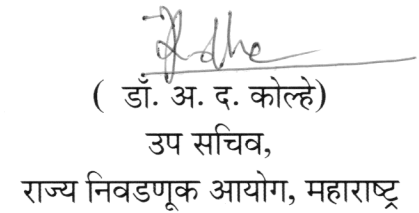 ( डॉ. अ. द. कोल्हे)
उप सचिव,
राज्य निवडणूक आयोग, महाराष्ट्र